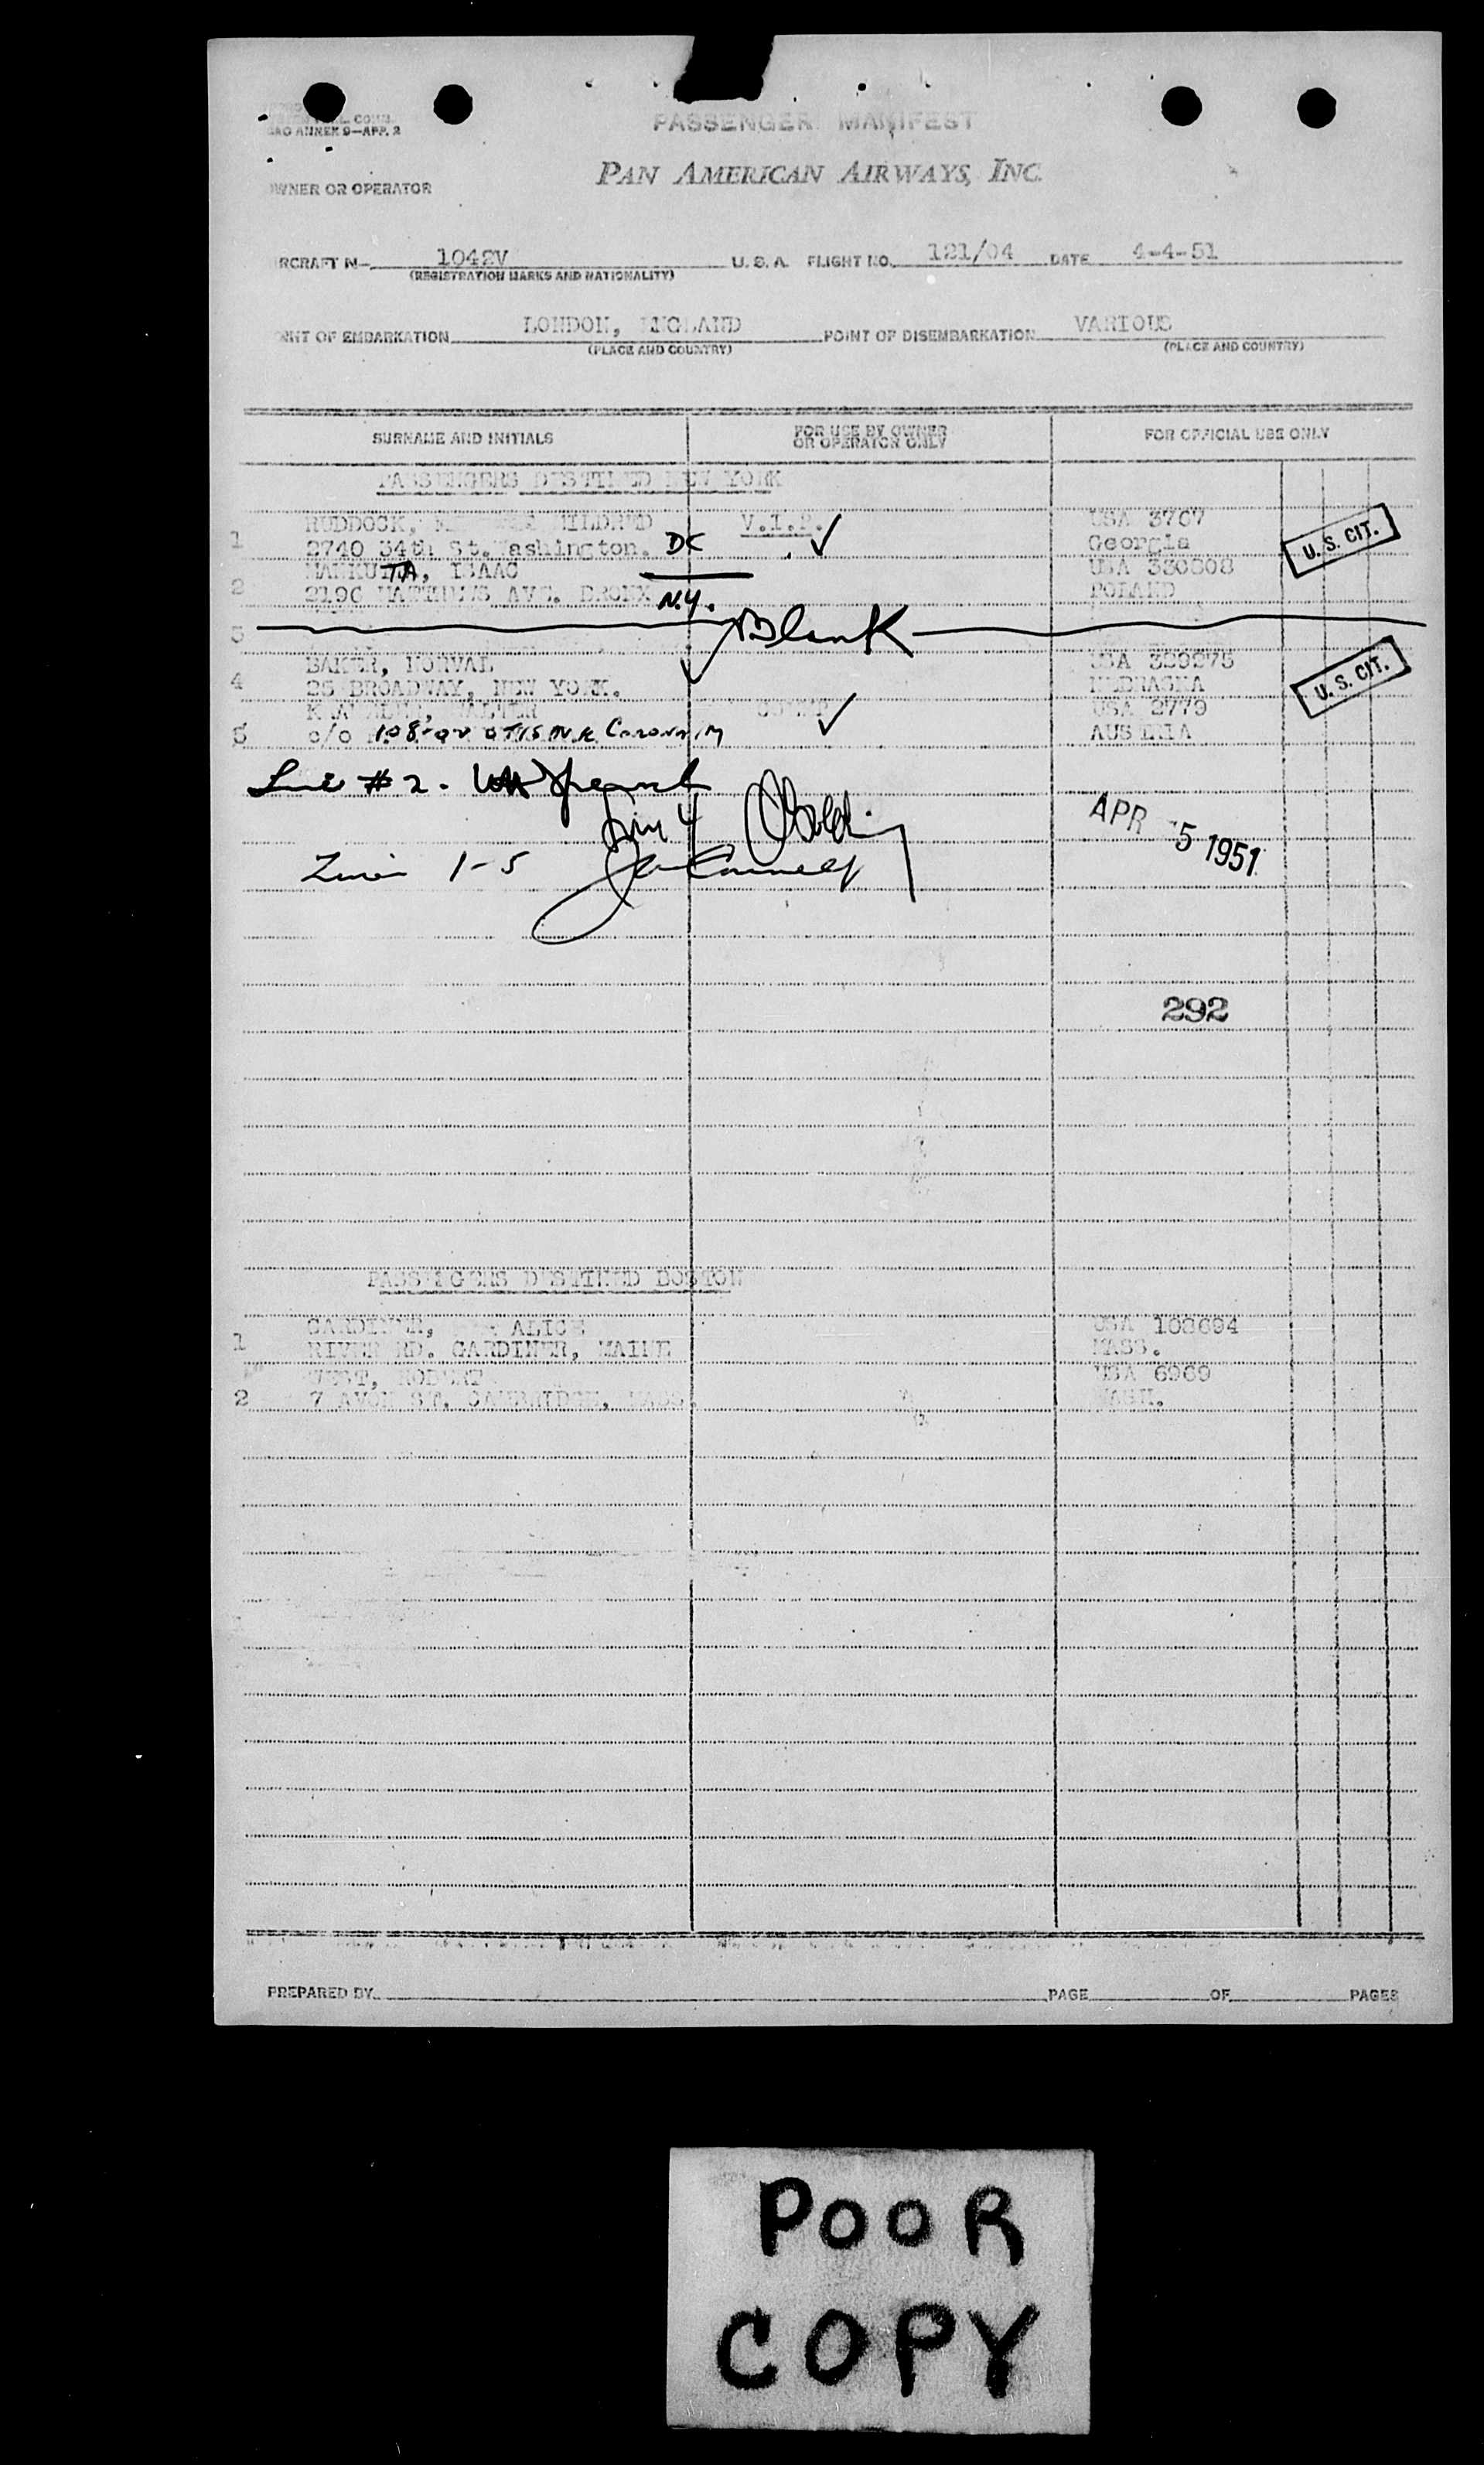 COMM.
ANNEX 9—APP. 2
PASSENGER MANIFEST
PAN AMERICAN AIRWAYS, INC.
WNER OR OPERATOR
RCRAFT N— 1042V U. S. A. FLIGHT NO. 121/04 DATE 4-4-51
(REGISTRATION MARKS AND NATIONALITY)
INT OF EMBARKATION LONDON, ENGLAND POINT OF DISEMBARKATION VARIOUS
(PLACE AND COUNTRY) (PLACE AND COUNTRY)
SURNAME AND INITIALS FOR USE BY OWNER OR OPERATOR ONLY FOR OFFICIAL USE ONLY
PASSENGERS DESTINED NEW YORK
1 RUDDOCK, MILDRED V.I.P. ✓ USA 3767 U.S. CIT.
2740 34th St. Washington. DC Georgia
2 MANKUTA, ISAAC USA 330808
2190 MATTHEWS AVE. BRONX N.Y. POLAND
3 Blank
4 BAKER, NORVAL ✓ USA 329275 U.S. CIT.
25 BROADWAY, NEW YORK. NEBRASKA
5 WALTER ✓ USA 2779
c/o 108-  Corona AUSTRIA
Line # 2.
Line 4
Lines 1-5
APR 5 1951
292
PASSENGERS DESTINED BOSTON
1 GARDINER, ALICE USA 108694
RIVER RD. GARDINER, MAINE MASS.
2 WEST, ROBERT USA 6969
7 AVON ST. CAMBRIDGE, MASS. WASH.
PREPARED BY PAGE OF PAGES
POOR
COPY